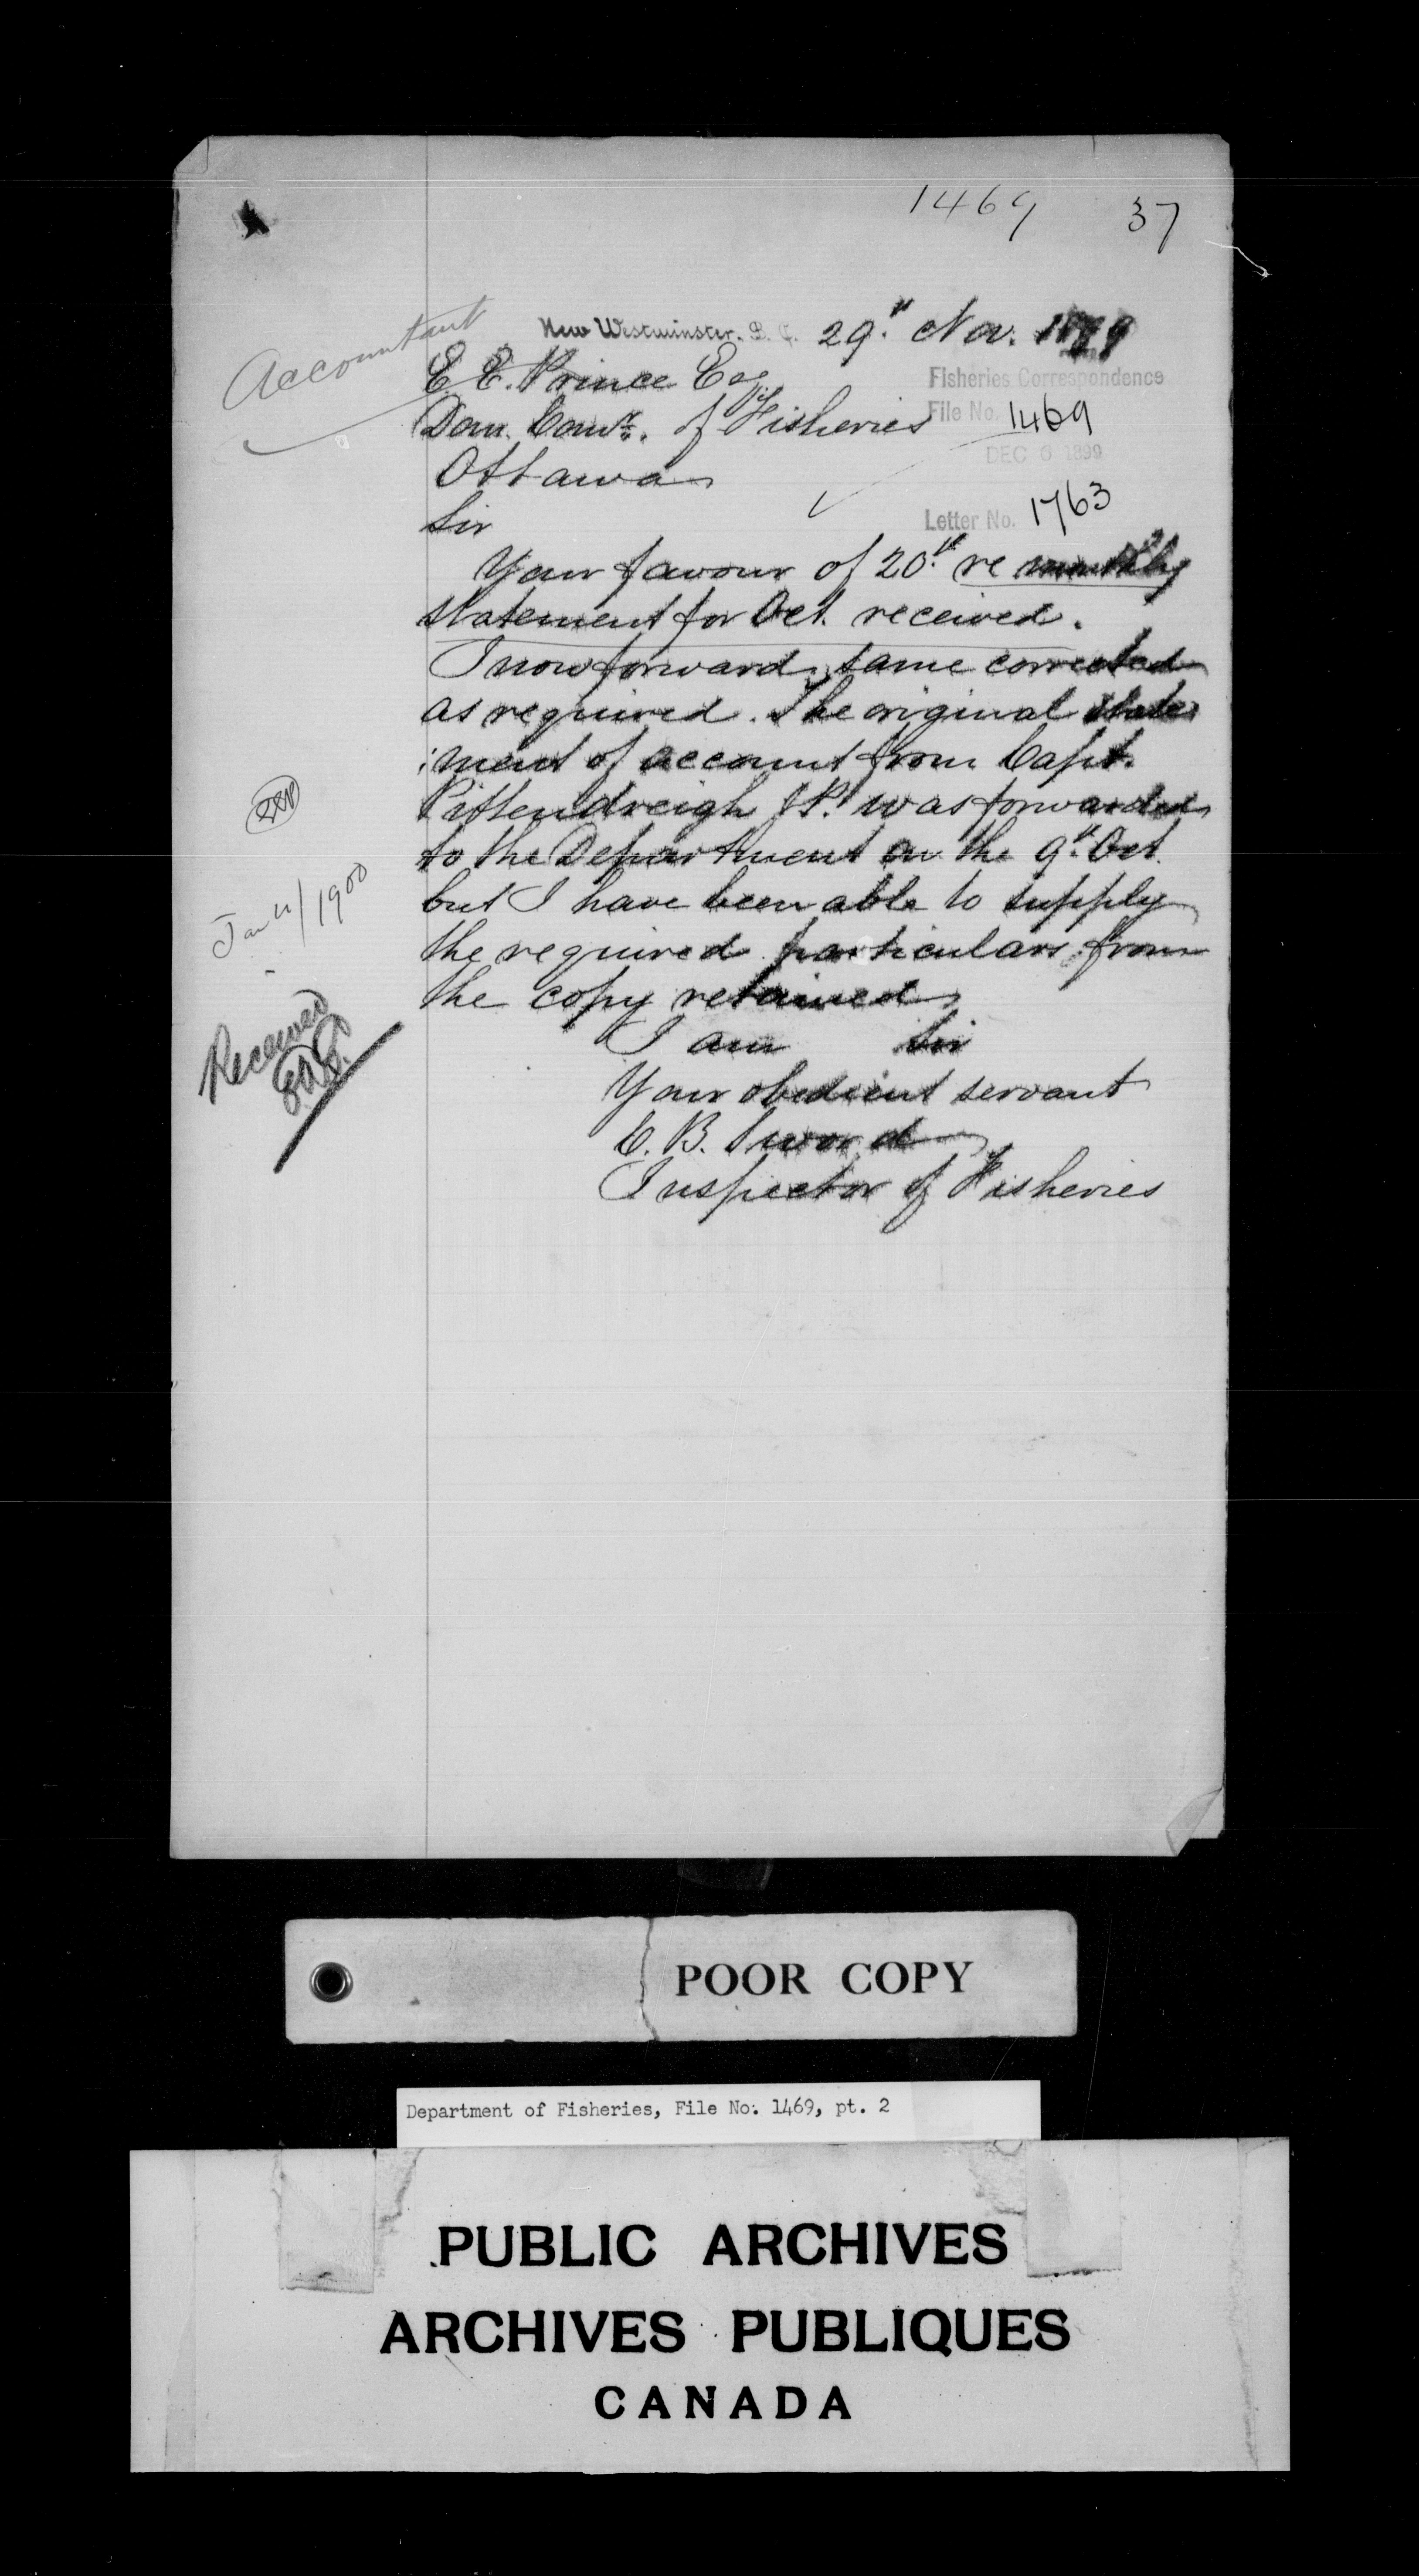 1469 37
Accountant
New Westminster, B. C. 29th Nov. 1899
E. E. Prince Esq
Fisheries Correspondence
Dom. Comr. of Fisheries
File No. 1469
DEC 6 1899
Ottawa
Letter No. 1763
Sir
Your favour of 20th re monthly
statement for Oct. received.
I now forward same corrected
as required. The original state
:ment of account from Capt.
Pittendreigh J.P. was forwarded
to the Department on the 9th Oct.
but I have been able to supply
the required particulars from
the copy retained
I am Sir
Your obedient servant
C. B. Sword
Inspector of Fisheries
EEP
Jan 4/1900
Received
POOR COPY
Department of Fisheries, File No. 1469, pt. 2
PUBLIC ARCHIVES
ARCHIVES PUBLIQUES
CANADA